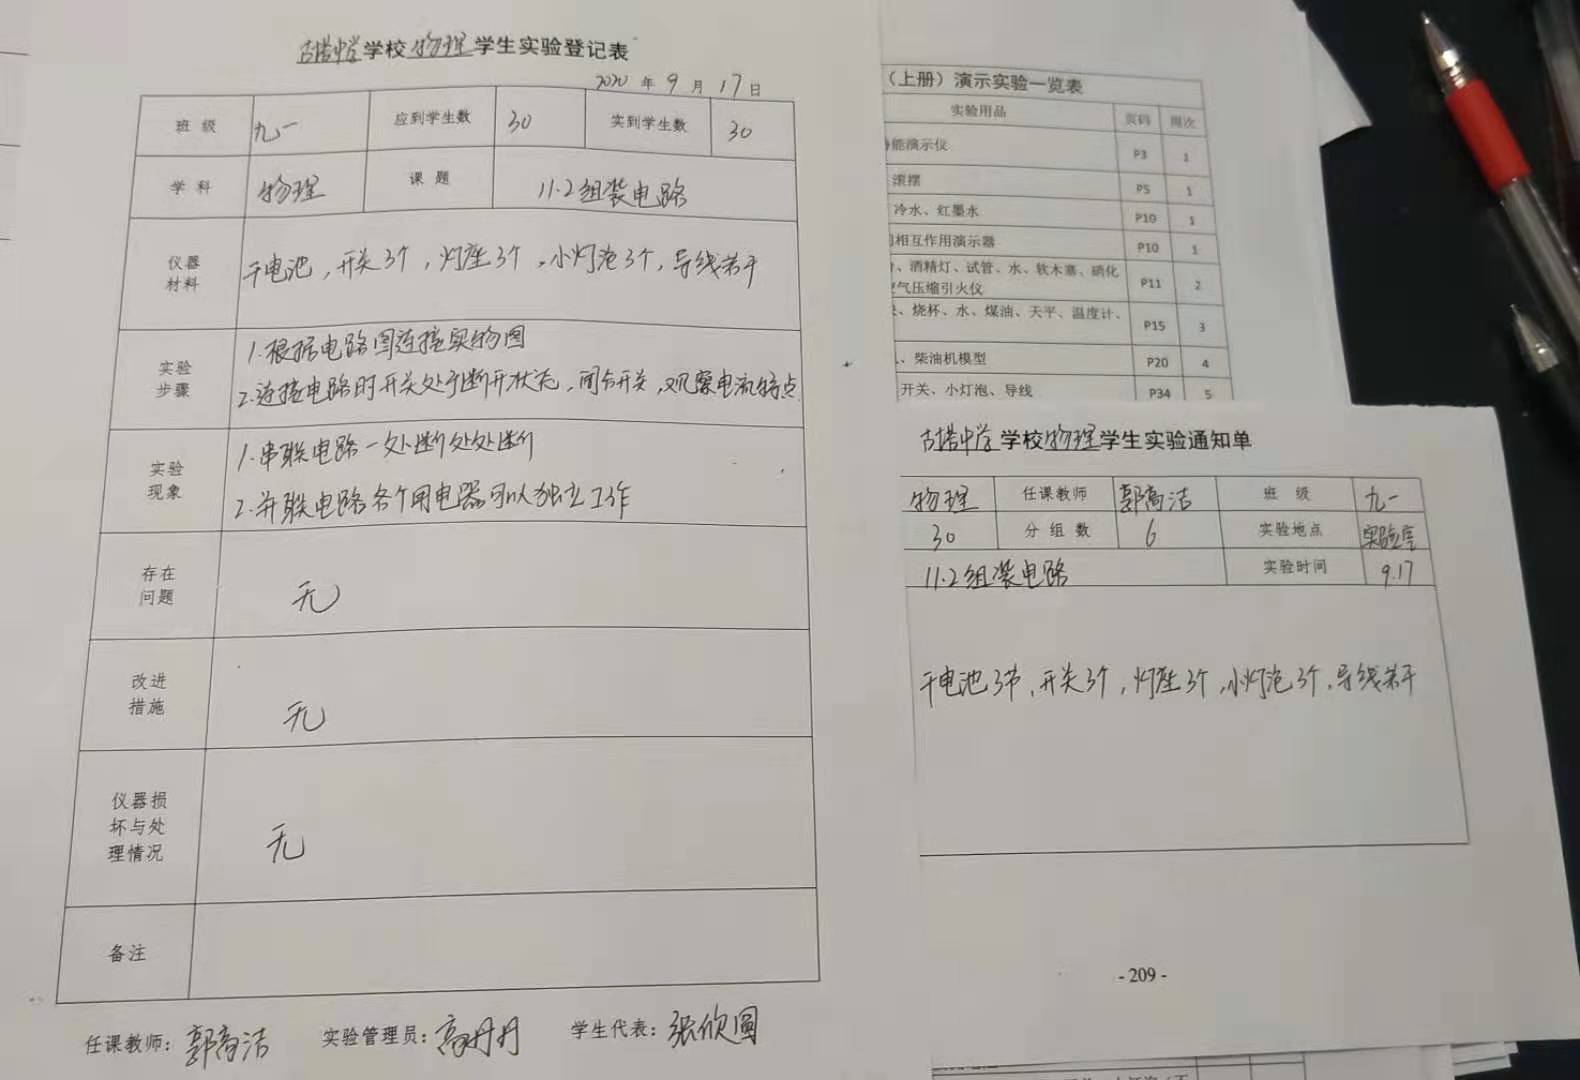 古塔中学学校物理学生实验登记表
2020年9月17日
班级 九一 应到学生数 30 实到学生数 30
学科 物理 课题 11.2组装电路
仪器材料 干电池，开关3个，灯座3个，小灯泡3个，导线若干
实验步骤 1.根据电路图连接实物图
2.连接电路时开关处于断开状态，闭合开关，观察电流特点.
实验现象 1.串联电路一处断处处断
2.并联电路各个用电器可以独立工作
存在问题 无
改进措施 无
仪器损坏与处理情况 无
备注
任课教师：郭高洁 实验管理员：高丹丹 学生代表：张欣圆
（上册）演示实验一览表
实验用品 页码 周次
能演示仪 P3 1
滚摆 P5 1
冷水、红墨水 P10 1
相互作用演示器 P10 1
、酒精灯、试管、水、软木塞、硝化
气压缩引火仪 P11 2
、烧杯、水、煤油、天平、温度计、
P15 3
、柴油机模型 P20 4
开关、小灯泡、导线 P34 5
古塔中学学校物理学生实验通知单
物理 任课教师 郭高洁 班级 九一
30 分组数 6 实验地点 实验室
11.2组装电路 实验时间 9.17
干电池3节，开关3个，灯座3个，小灯泡3个，导线若干
- 209 -